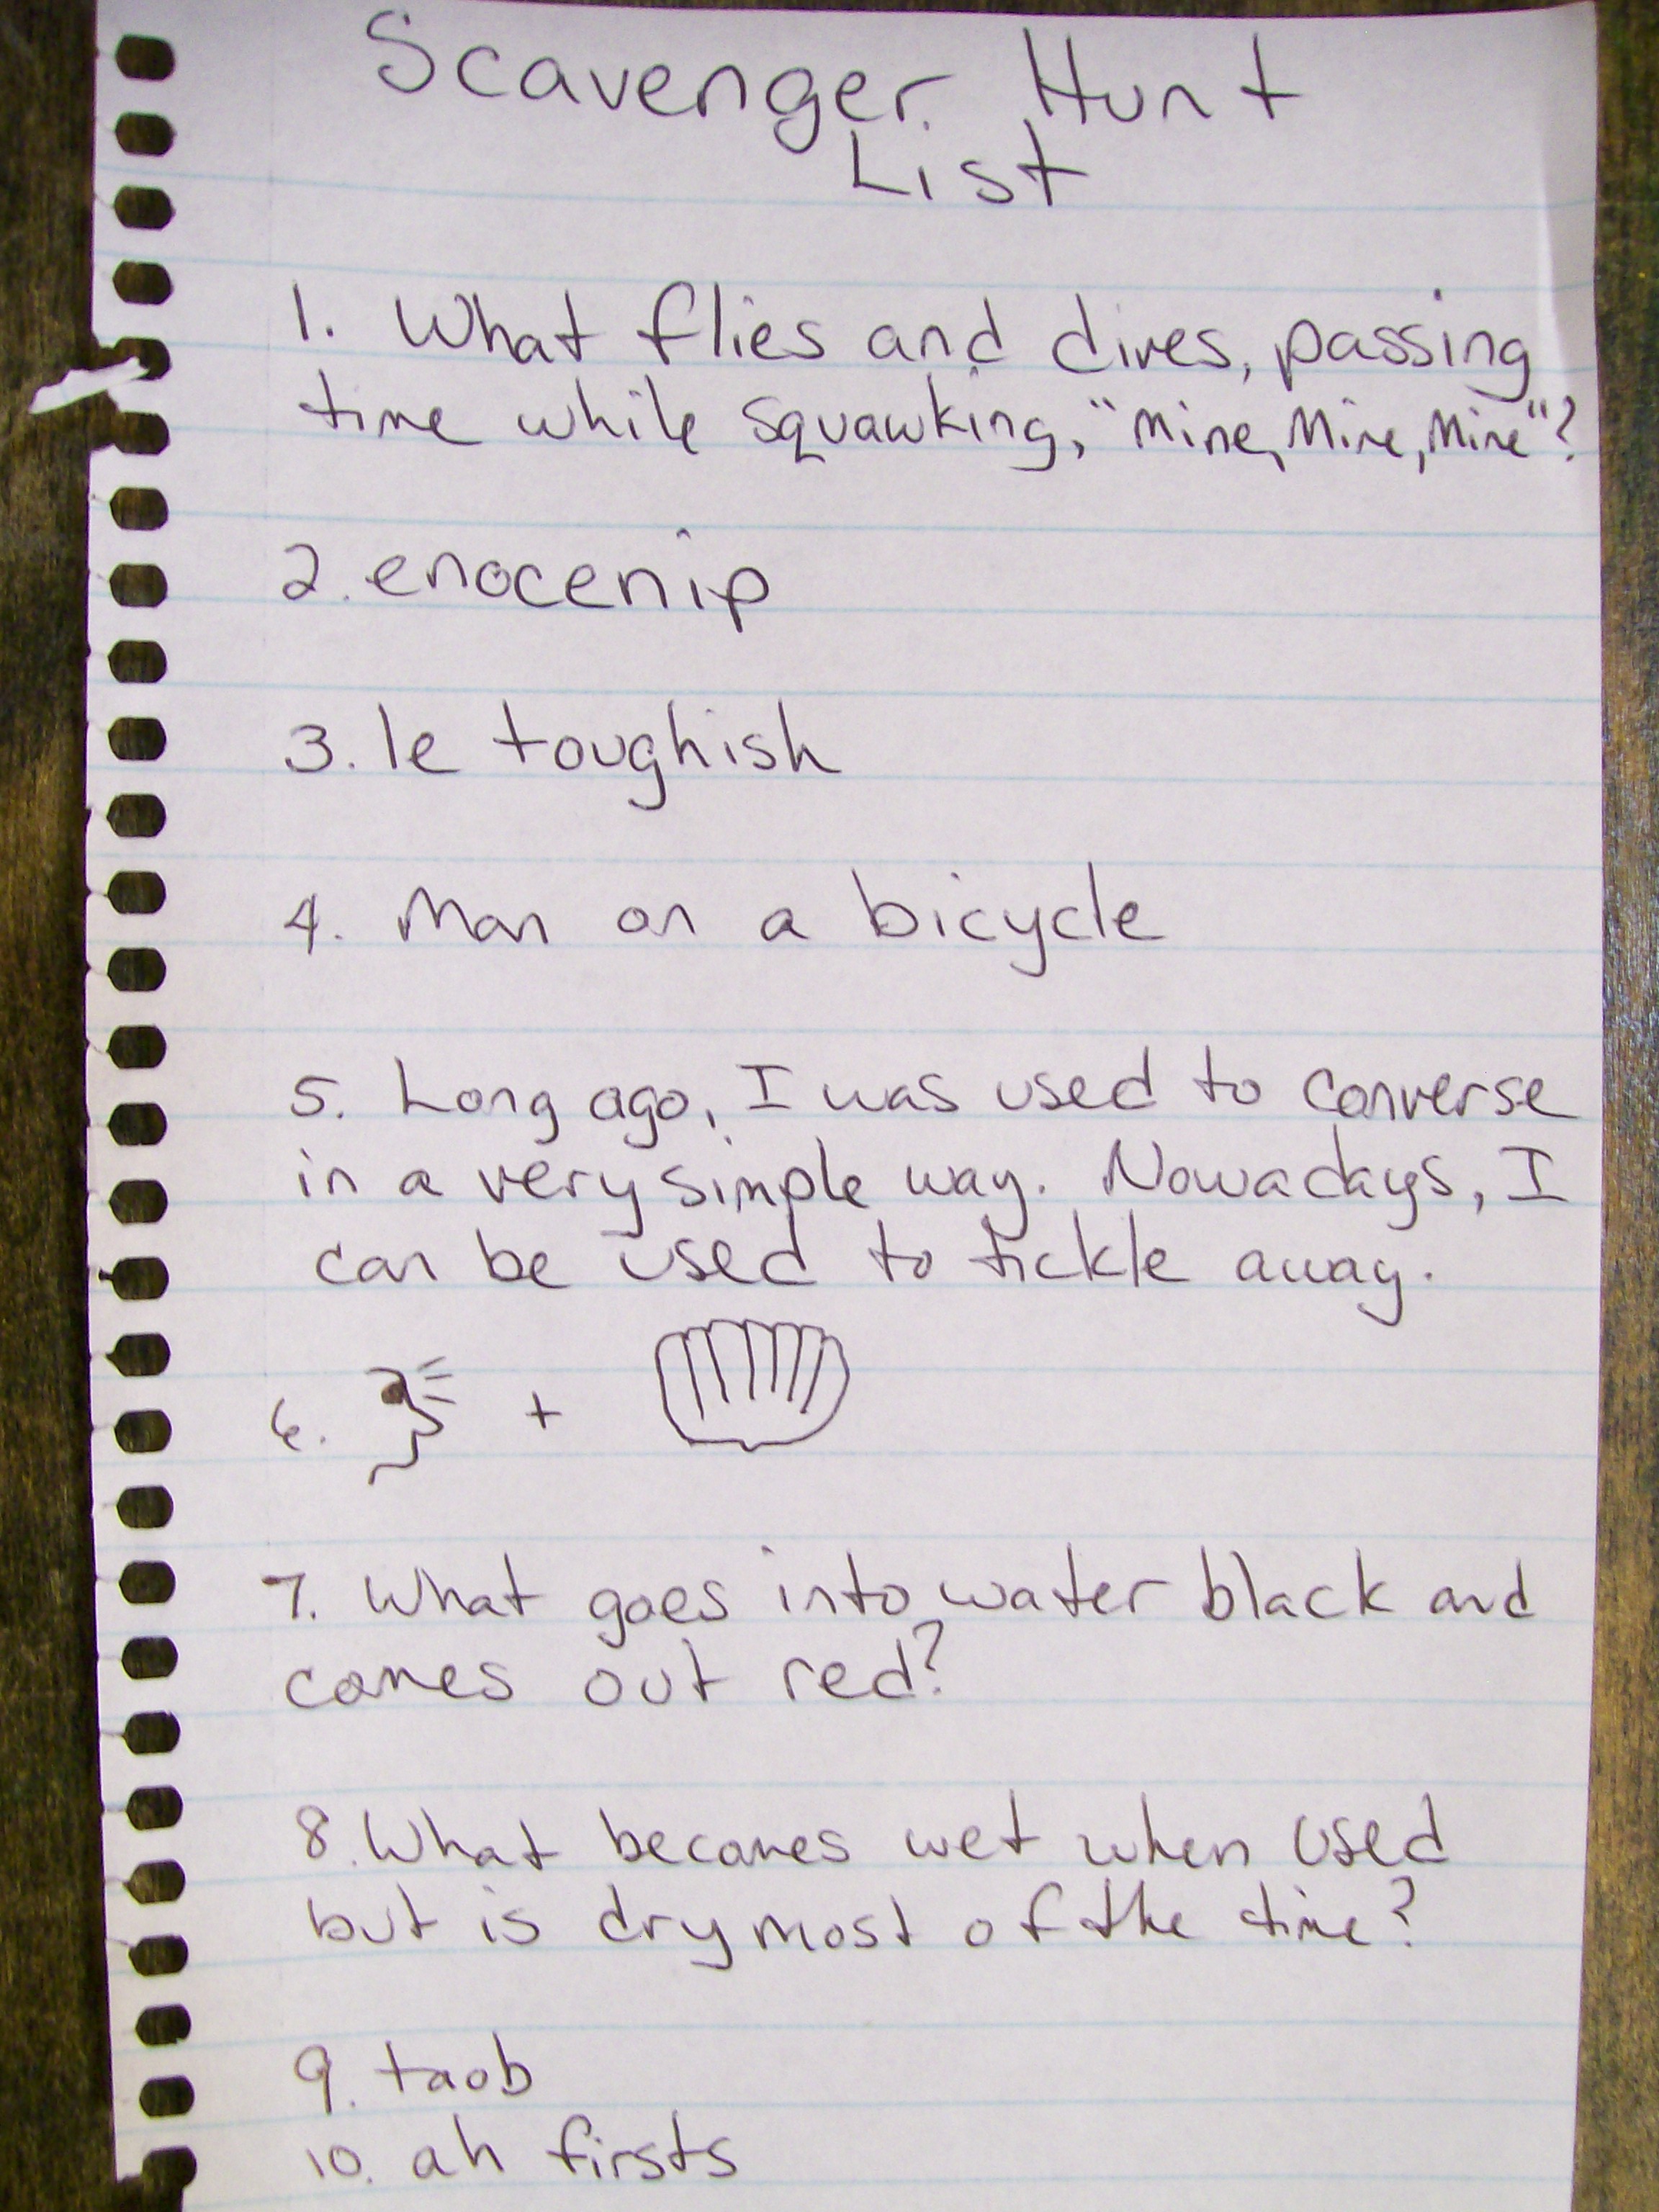 Scavenger Hunt
List
1. What flies and dives, passing
time while squawking, "Mine, Mine, Mine"?
2. enocenip
3. le toughish
4. Man on a bicycle
5. Long ago, I was used to converse
in a very simple way. Nowadays, I
can be used to tickle away.
6. +
7. What goes into water black and
comes out red?
8. What becomes wet when used
but is dry most of the time?
9. taob
10. ah firsts